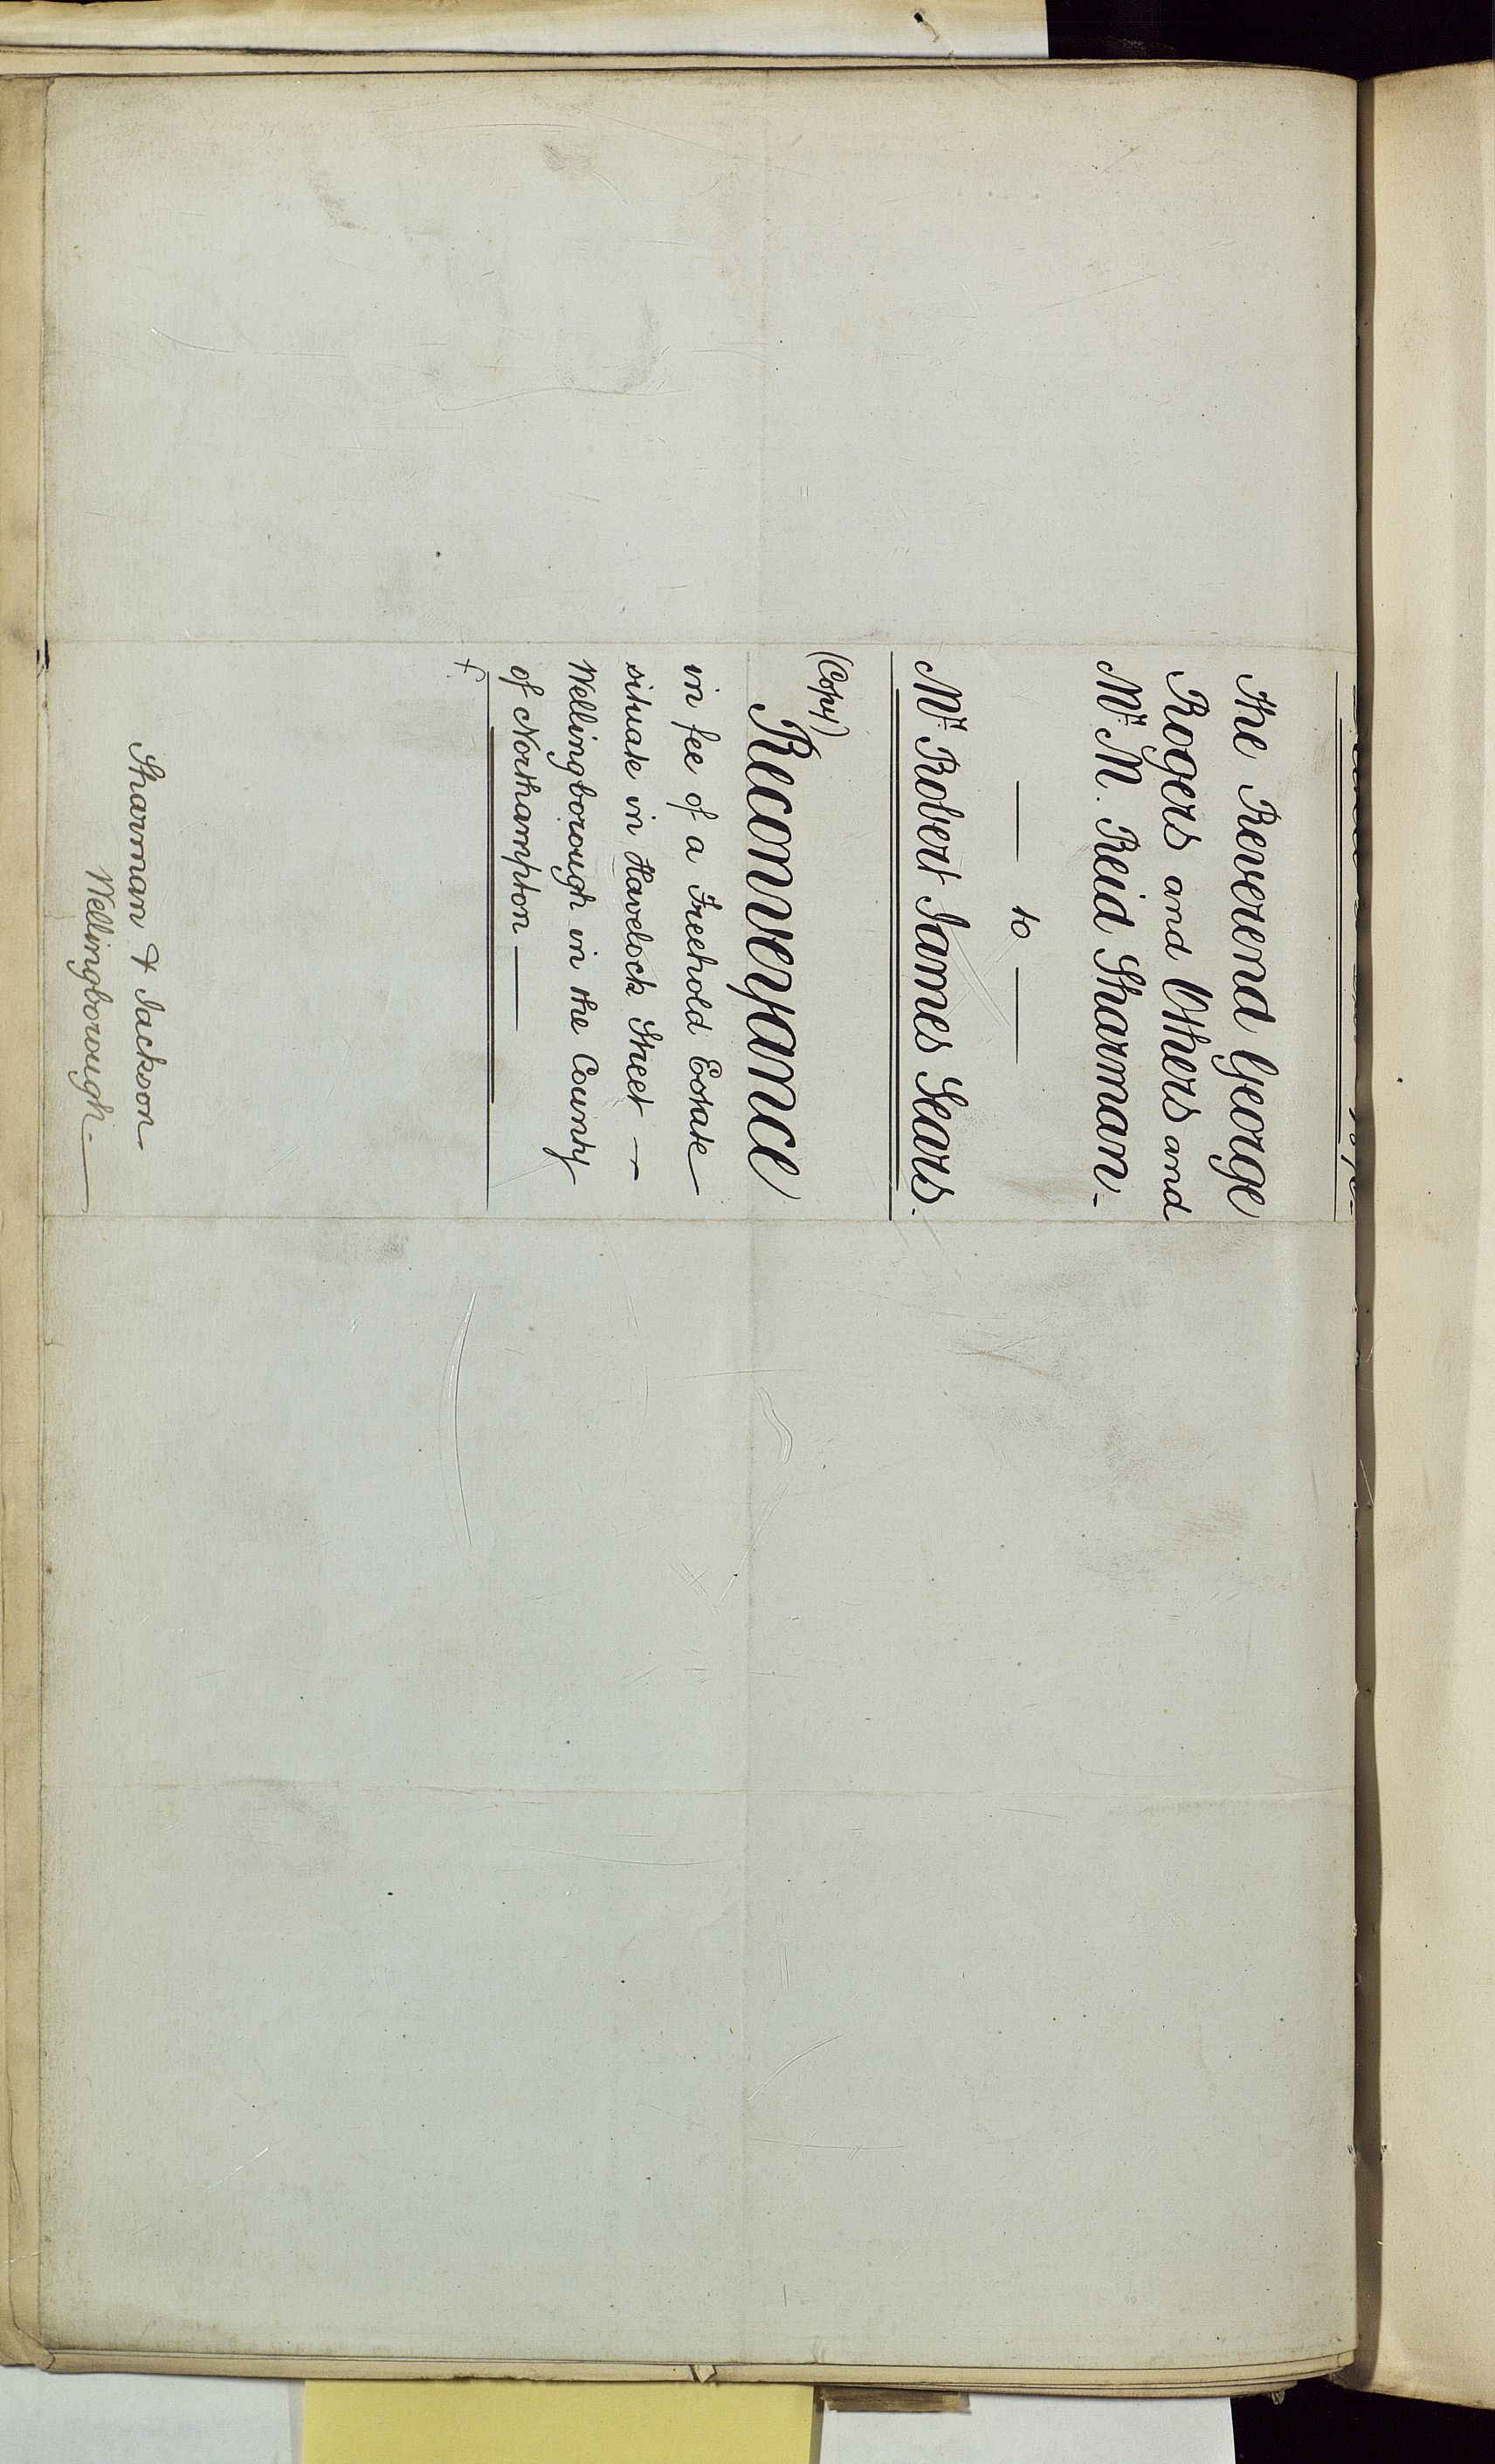 The Reverend George
Rogers and Others and
Mr. M. Reid Sharman -
— to —
Mr. Robert James Sears.
(Copy)
Reconveyance
in fee of a Freehold Estate
situate in Havelock Street —
Wellingborough in the County
of Northampton —
Sharman & Jackson
Wellingborough. —